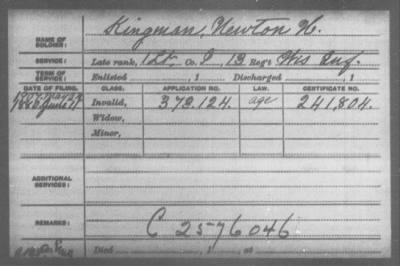 NAME OF SOLDIER: Kingman, Newton H.
SERVICE: Late rank, 1 Lt, Co. I, 13 Reg't Wis Inf.
TERM OF SERVICE: Enlisted , 1 Discharged , 1
DATE OF FILING. CLASS. APPLICATION NO. LAW. CERTIFICATE NO.
1880 June 11 Invalid, 373.124. age 241,804.
Widow,
Minor,
ADDITIONAL SERVICES:
REMARKS: C 2576046
Died , 1 , at